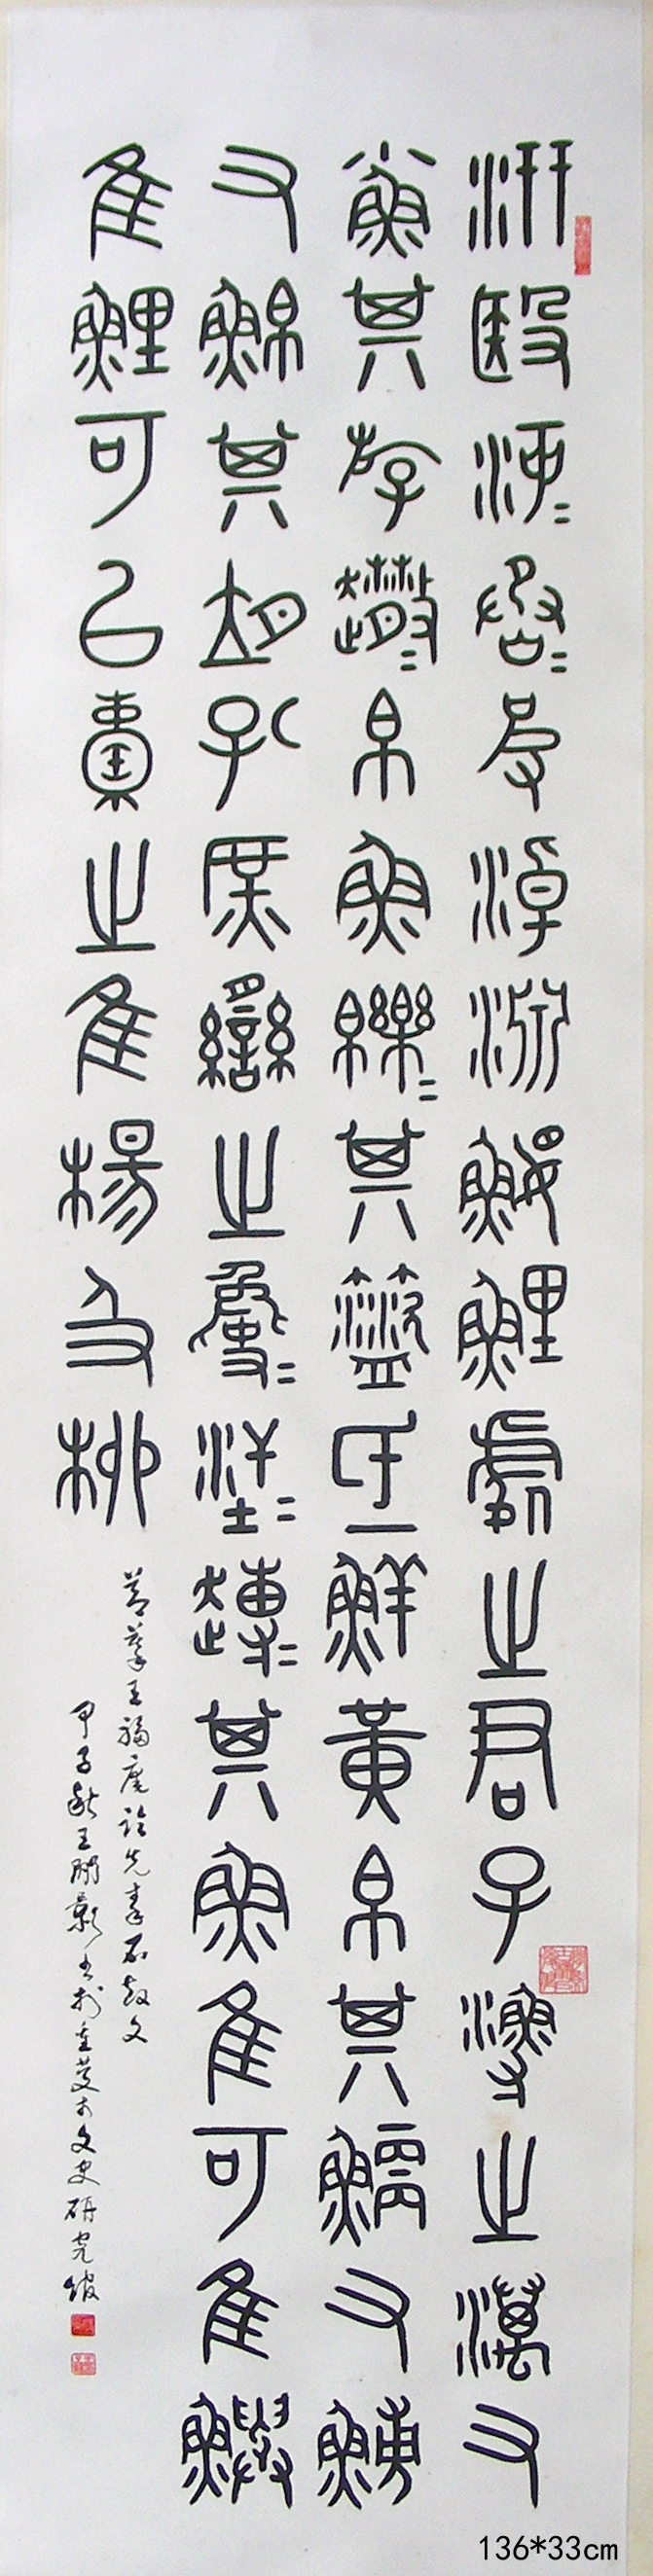 汧殹沔〓丞〓皮淖淵鰋鯉處之君子漁之澫又
小魚其斿趣〓帛魚皪〓其盜氐鮮黃帛其鯿又鰟
又鮊其胡孔庶臠之㚟〓汗〓趍〓其魚隹可隹鱮
隹鯉可以橐之隹楊及柳
節摹王福庵臨先秦石鼓文
甲子秋王書於重慶市文史研究館
136*33cm